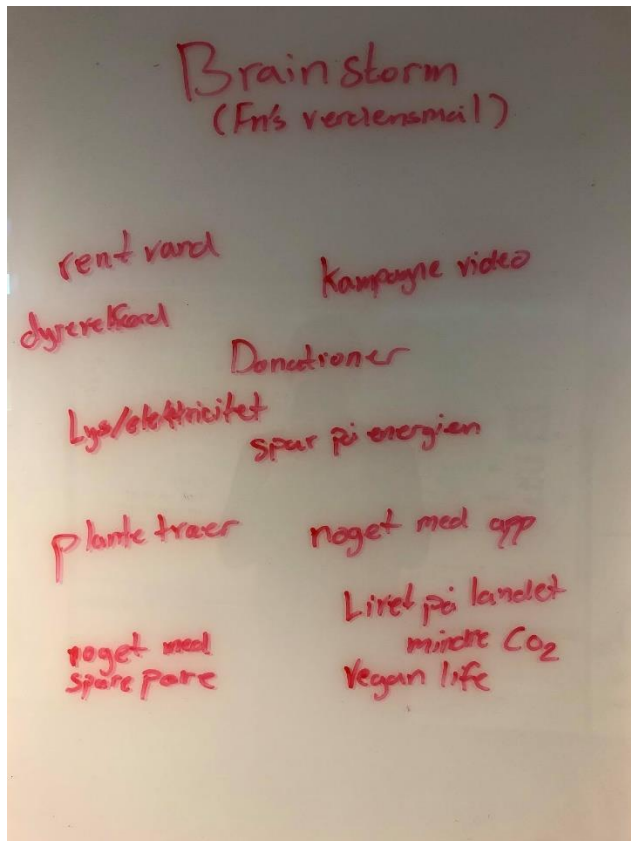 Brainstorm
(Fn's verdensmål)
rent vand
Kampagne video
dyrevelfærd
Donationer
Lys/elektricitet
spar på energien
plante træer
noget med app
Livet på landet
mindre CO2
noget med
spare pære
Vegan life